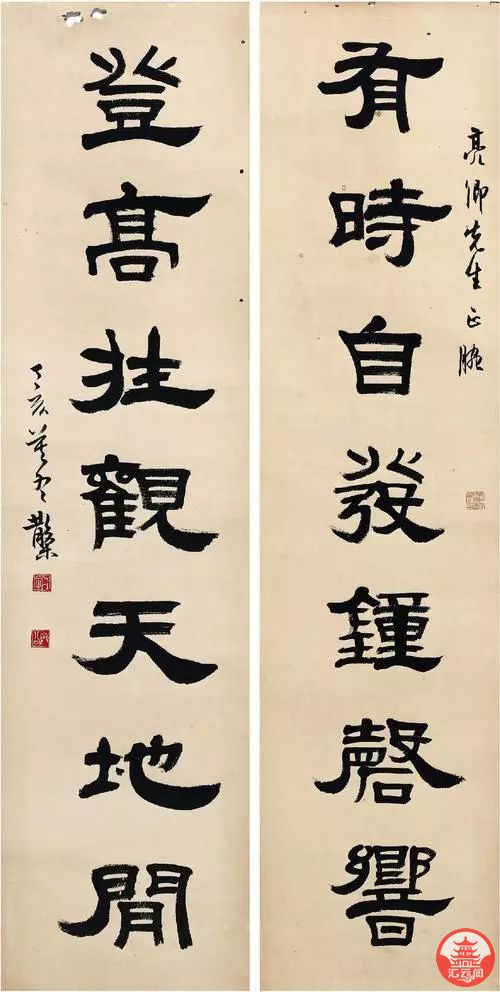 亮卿先生正腕
有時自發鐘磬響
登高壯觀天地閒
丁亥
汇云阁